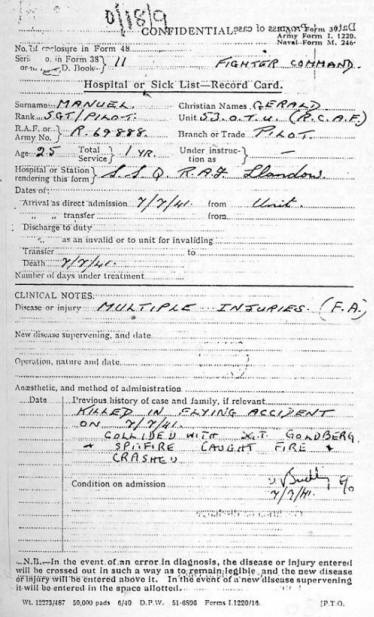 D/18/9
CONFIDENTIAL
Form 39
Army Form I. 1220.
Naval Form M. 246.
No. of enclosure in Form 48
Form 38 } 11
D. Book
FIGHTER COMMAND.
Hospital or Sick List—Record Card.
Surname MANUEL. Christian Names GERALD
Rank SGT/PILOT. Unit 53 O.T.U. (R.C.A.F.)
R.A.F. or Army No. } R. 69888. Branch or Trade PILOT.
Age 25 Total Service } 1 YR. Under instruction as } —
Hospital or Station rendering this form } S.S.Q. R.A.F. Llandow.
Dates of:
Arrival as direct admission 7/7/41. from Unit.
" " transfer from
Discharge to duty
" as an invalid or to unit for invaliding
Transfer to
Death 7/7/41.
Number of days under treatment
CLINICAL NOTES.
Disease or injury MULTIPLE INJURIES. (F.A.)
New disease supervening, and date
Operation, nature and date
Anæsthetic, and method of administration
Date Previous history of case and family, if relevant
KILLED IN FLYING ACCIDENT
ON 7/7/41.
COLLIDED WITH SGT. GOLDBERG.
+ SPITFIRE CAUGHT FIRE +
CRASHED
Condition on admission
7/7/41.
N.B.—In the event of an error in diagnosis, the disease or injury entered
will be crossed out in such a way as to remain legible and the new disease
or injury will be entered above it. In the event of a new disease supervening
it will be entered in the space allotted.
Wt. 12273/487 50,000 pads 6/40 D.P.W. 51-6896 Forms I.1220/16 [P.T.O.